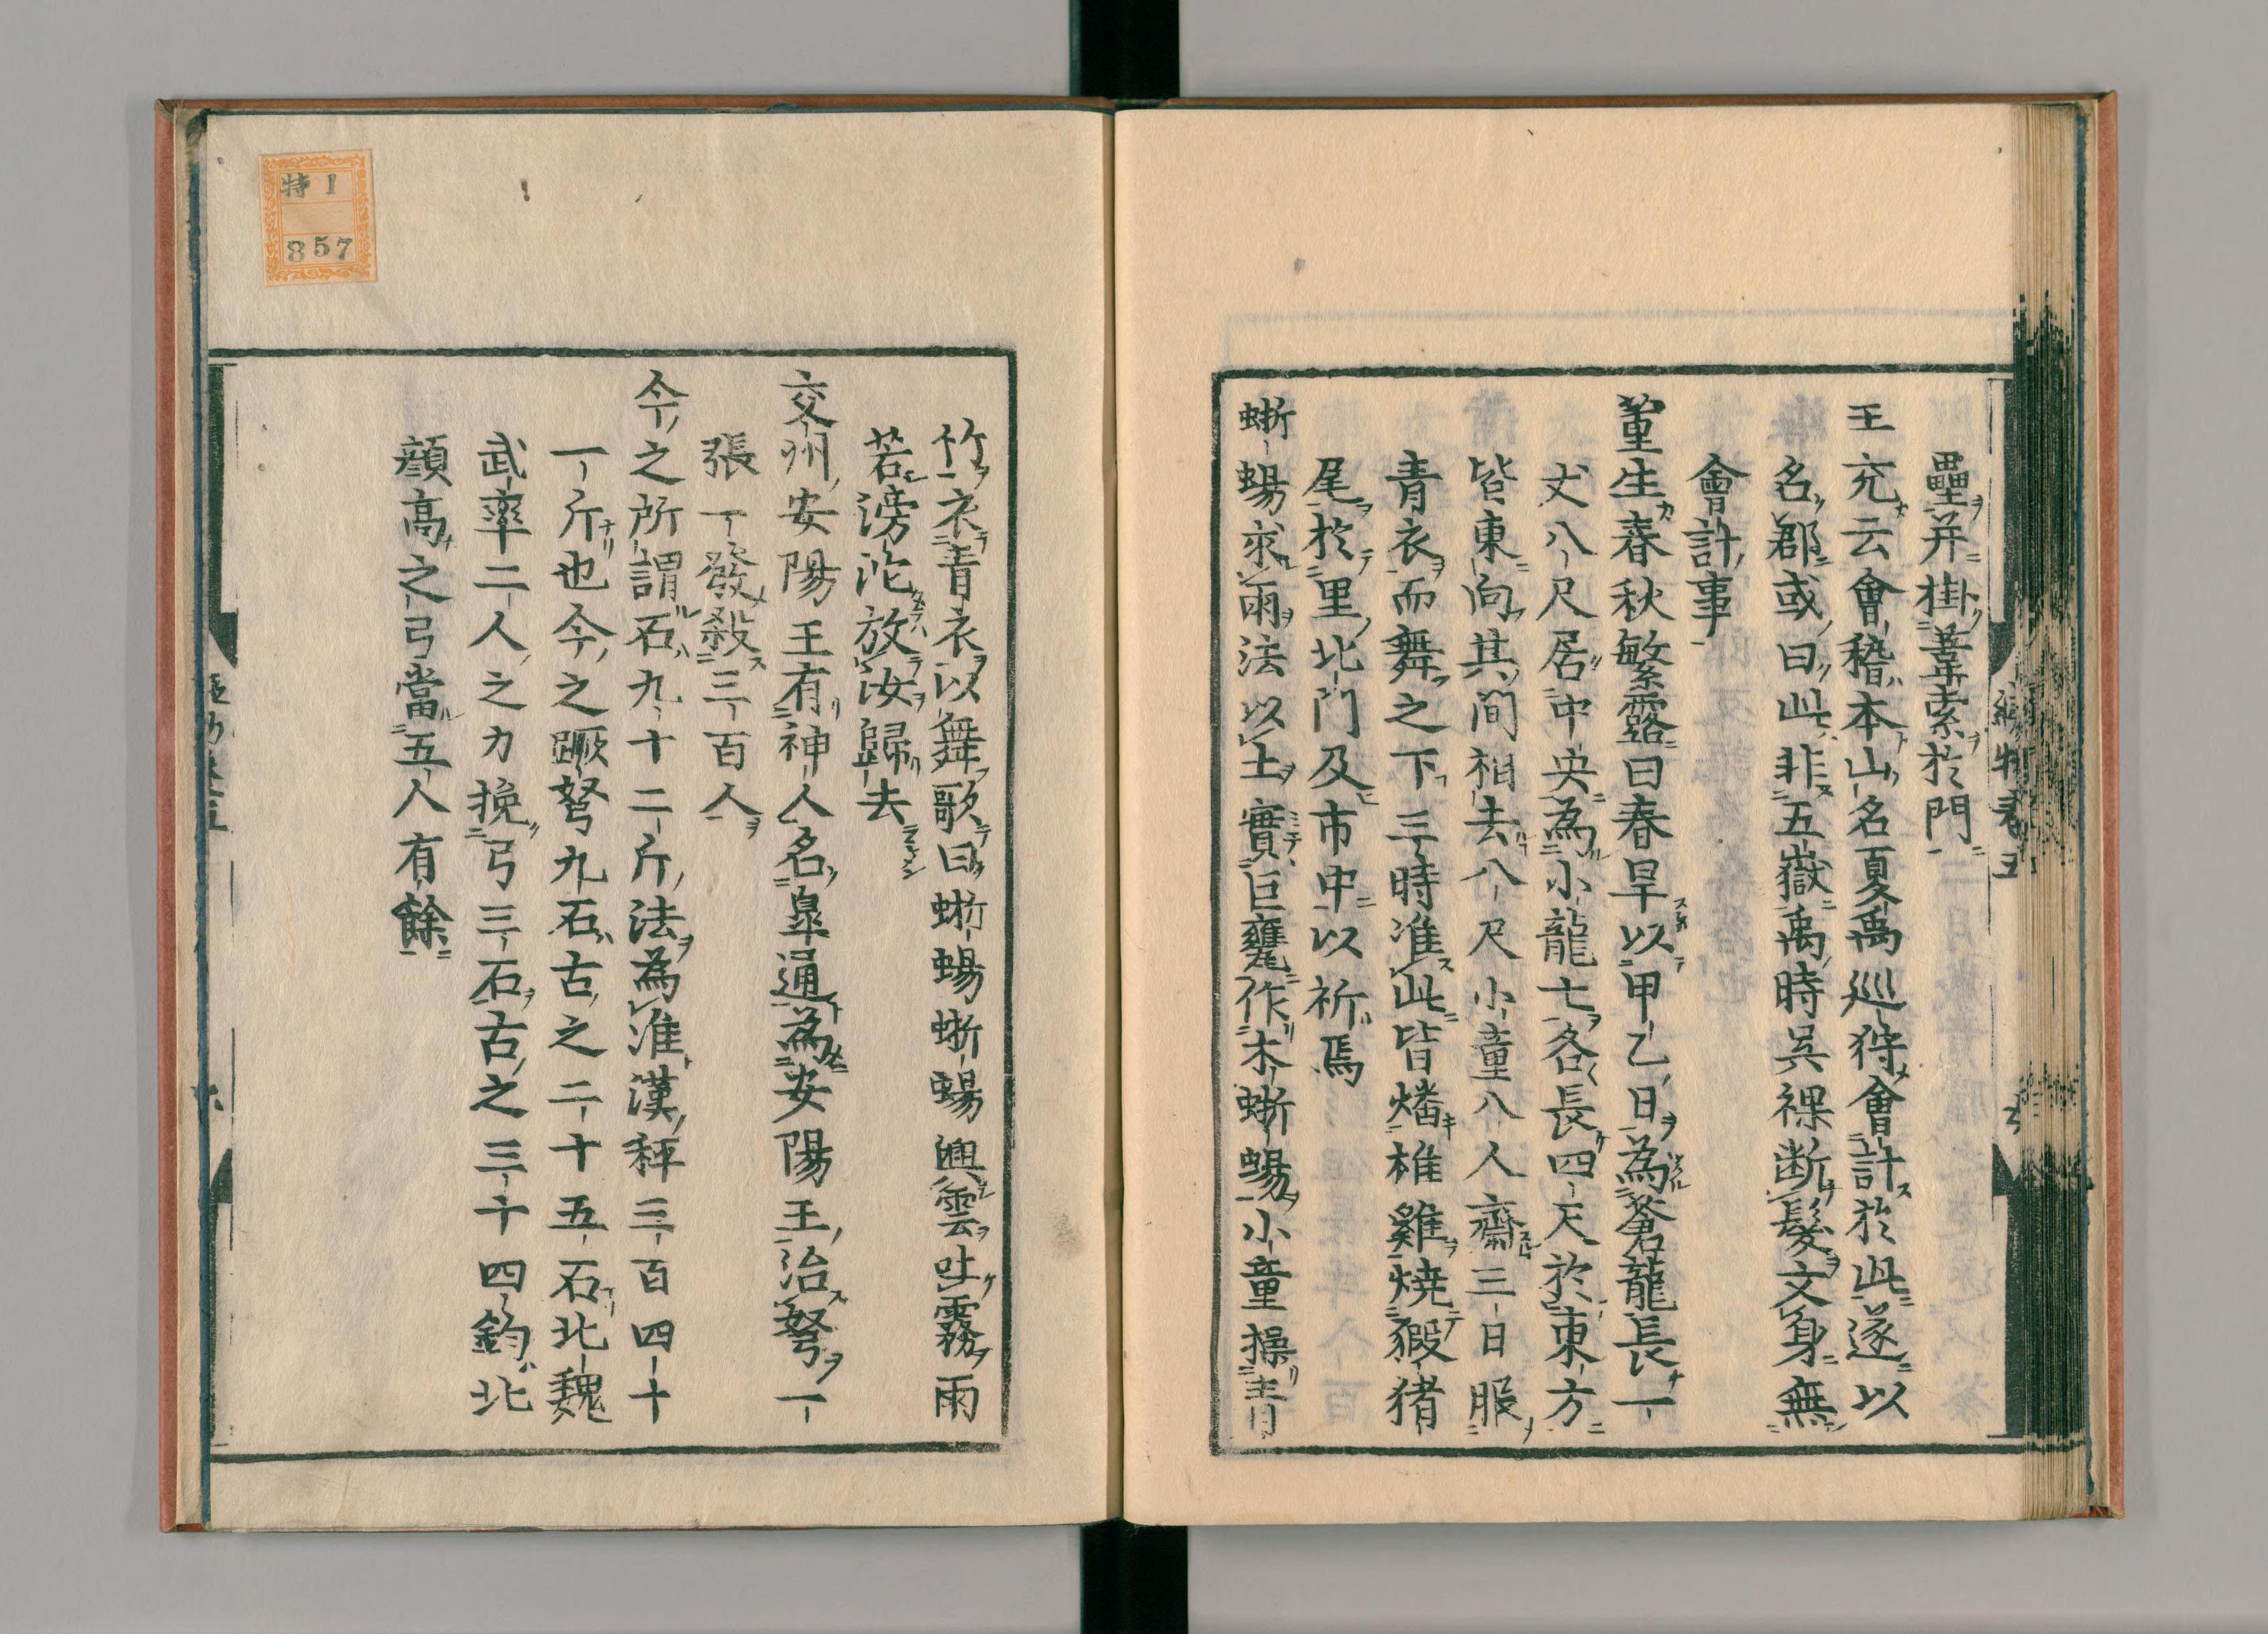 壘并掛葦索於門
王充云會稽本山名夏禹巡狩會計於此遂以
名郡或曰此非五嶽禹時吳裸断髪文身無
會計事
董生春秋繁露曰春旱以甲乙日為蒼龍長一
丈八尺居中央為小龍七各長四尺於東方
皆東向其間相去八尺小童八人齋三日服
青衣而舞之下三時准此皆燔椎雞燒猳猪
尾於里北門及市中以祈焉
蜥蜴求雨法以土實巨甕作木蜥蜴小童操青
竹衣青衣以舞歌曰蜥蜴蜥蜴興雲吐霧雨
若滂沱放汝歸去
交州安陽王有神人名皐通為安陽王治弩一
張一發殺三百人
今之所謂石九十二斤法為准漢秤三百四十
一斤也今之蹶弩九石古之二十五石北魏
武率二人之力挽弓三石古之三十四鈞北
顔高之弓當五人有餘
特1
857